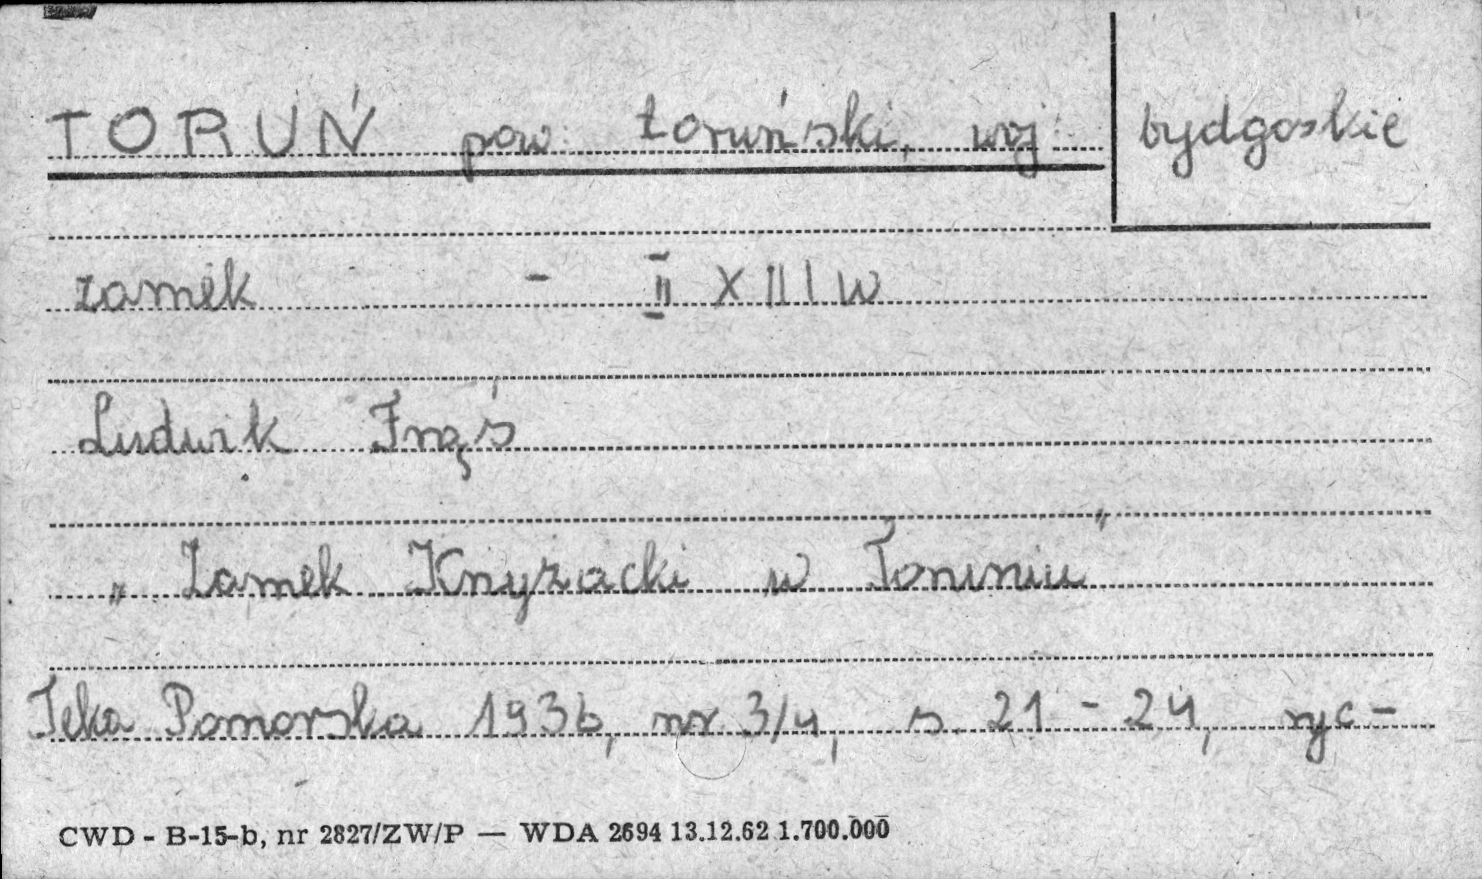 TORUŃ pow. toruński, woj. bydgoskie
zamek - II XIII w
Ludwik Fręś
„Zamek Krzyżacki w Toruniu"
Teka Pomorska 1936, nr 3/4, s. 21 - 24, ryc -
CWD - B-15-b, nr 2827/ZW/P — WDA 2694 13.12.62 1.700.000